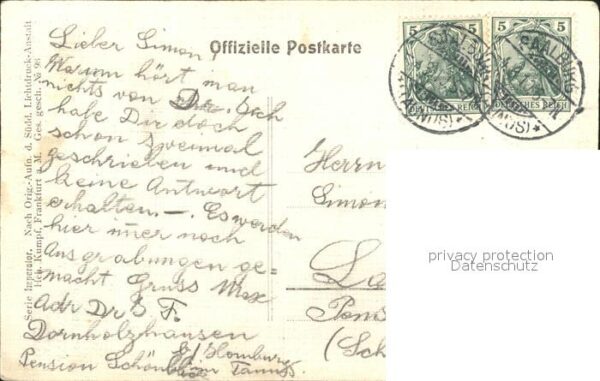 Offizielle Postkarte
Lieber Simon,
Warum hört man
nichts von Dir. Ich
habe Dir doch
schon zweimal
geschrieben und
keine Antwort
erhalten. –. Es werden
hier immer noch
Ausgrabungen ge-
macht. Gruss Max
Adr Dr
Dornholzhausen
b/Homburg
Pension Schönblick im Taunus
Serie Imperator. Nach Orig.-Aufn. d. Südd. Lichtdruck-Anstalt
Hch. Kumpf, Frankfurt a. M. Ges. gesch. № 98
5 5
DEUTSCHES REICH
5 5
DEUTSCHES REICH
SAALBURG
(TAUNUS)
SAALBURG
(TAUNUS)
Herrn
Simon
privacy protection
Datenschutz